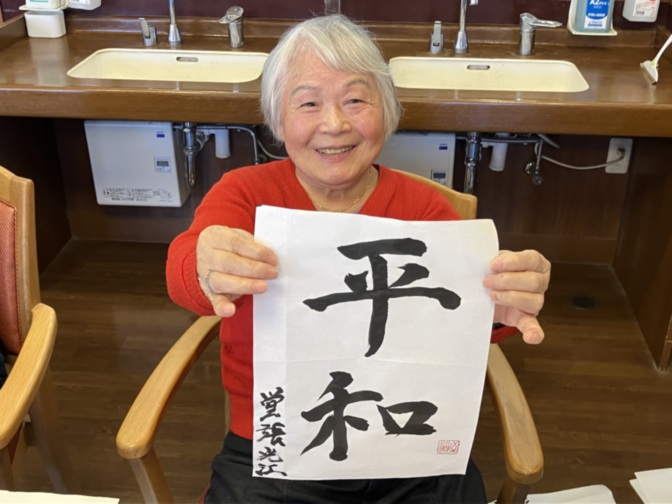 平
和
堂張光江